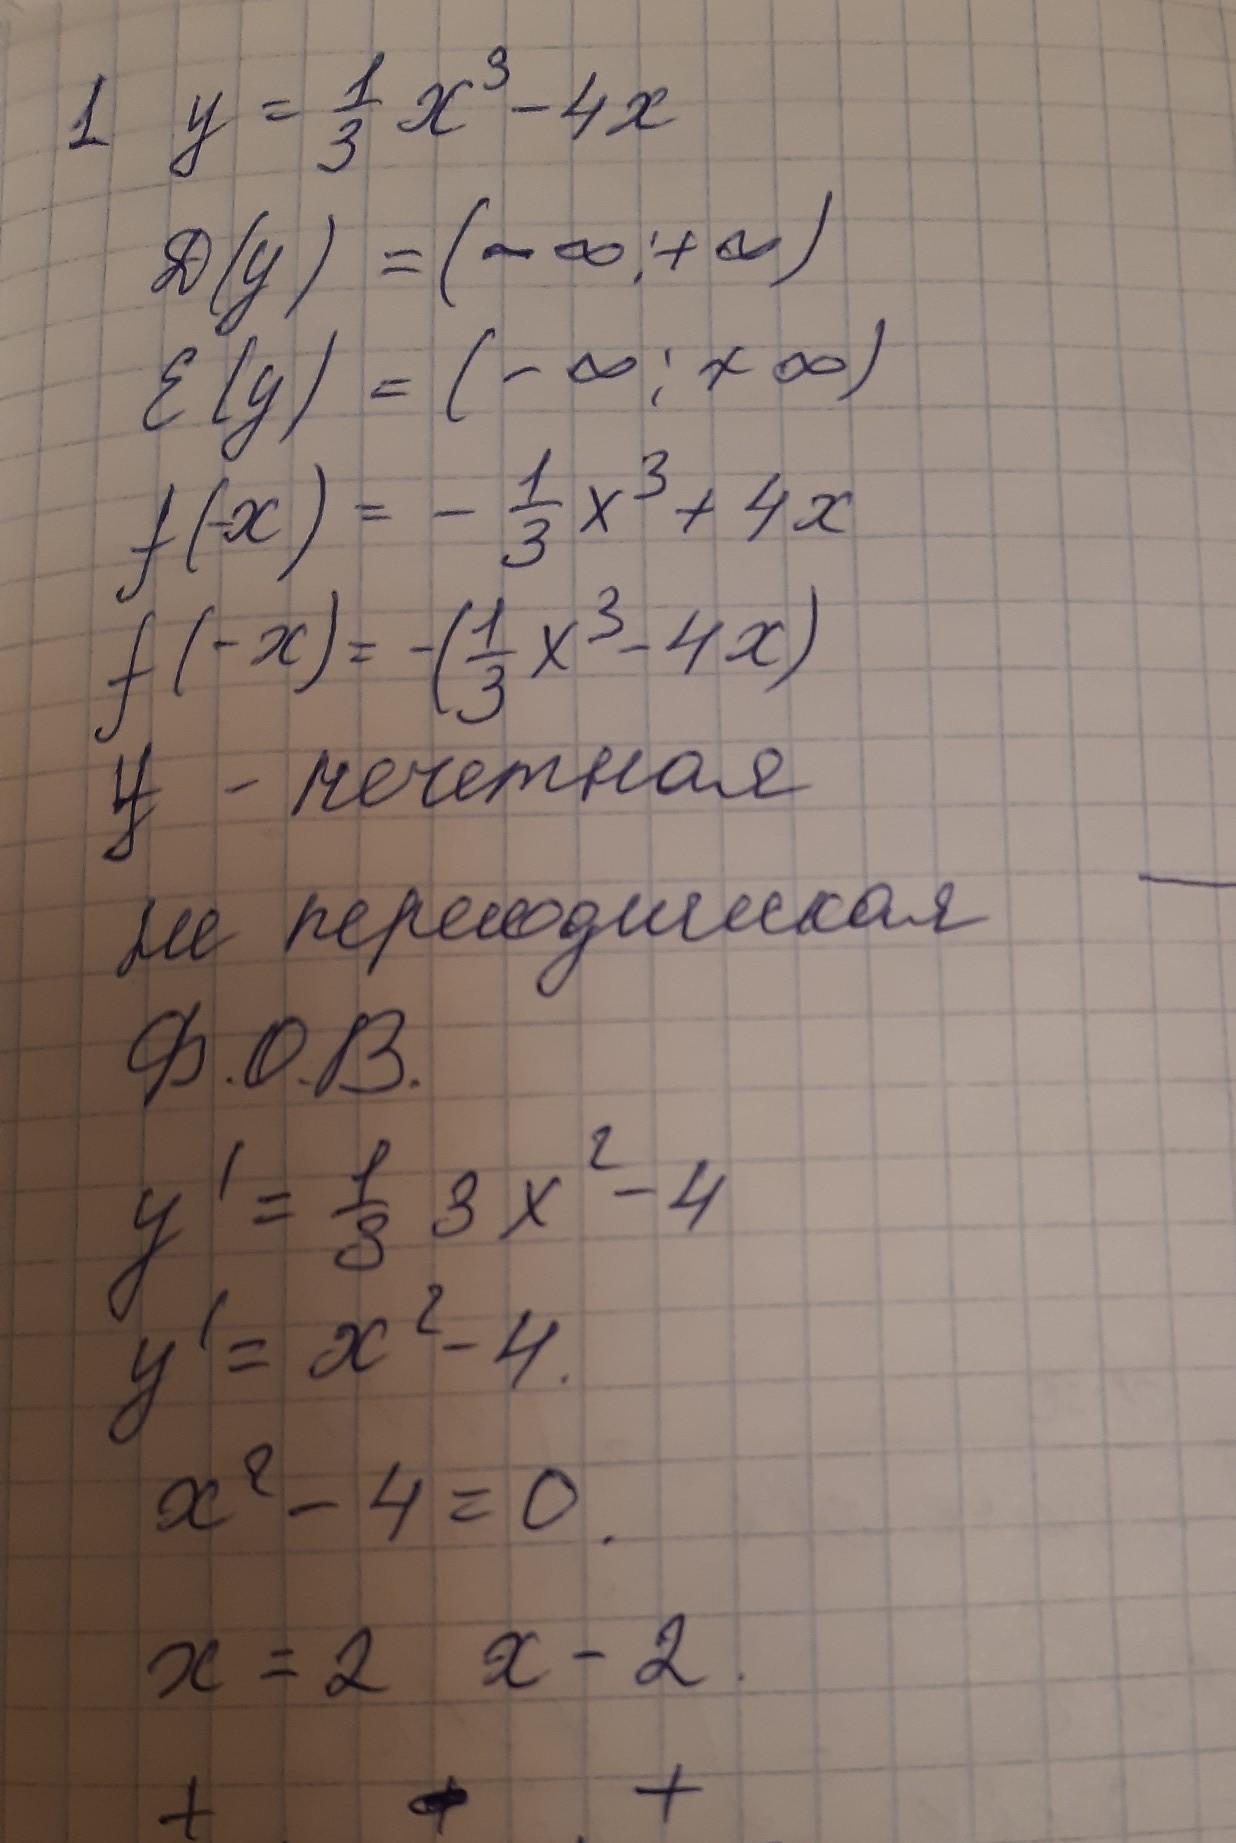 1 y = 1/3 x³ - 4x
D(y) = (-∞; +∞)
E(y) = (-∞; +∞)
f(-x) = - 1/3 x³ + 4x
f(-x) = -(1/3 x³ - 4x)
y - нечетная
не переодическая
Ф.О.В.
y' = 1/3 3x² - 4
y' = x² - 4.
x² - 4 = 0.
x = 2 x - 2.
+ +